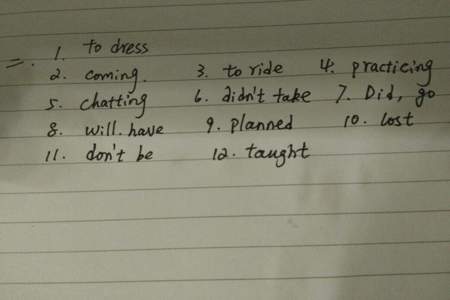 二. 1. to dress
2. coming. 3. to ride 4. practicing
5. chatting 6. didn't take 7. Did, go
8. will have 9. planned 10. lost
11. don't be 12. taught